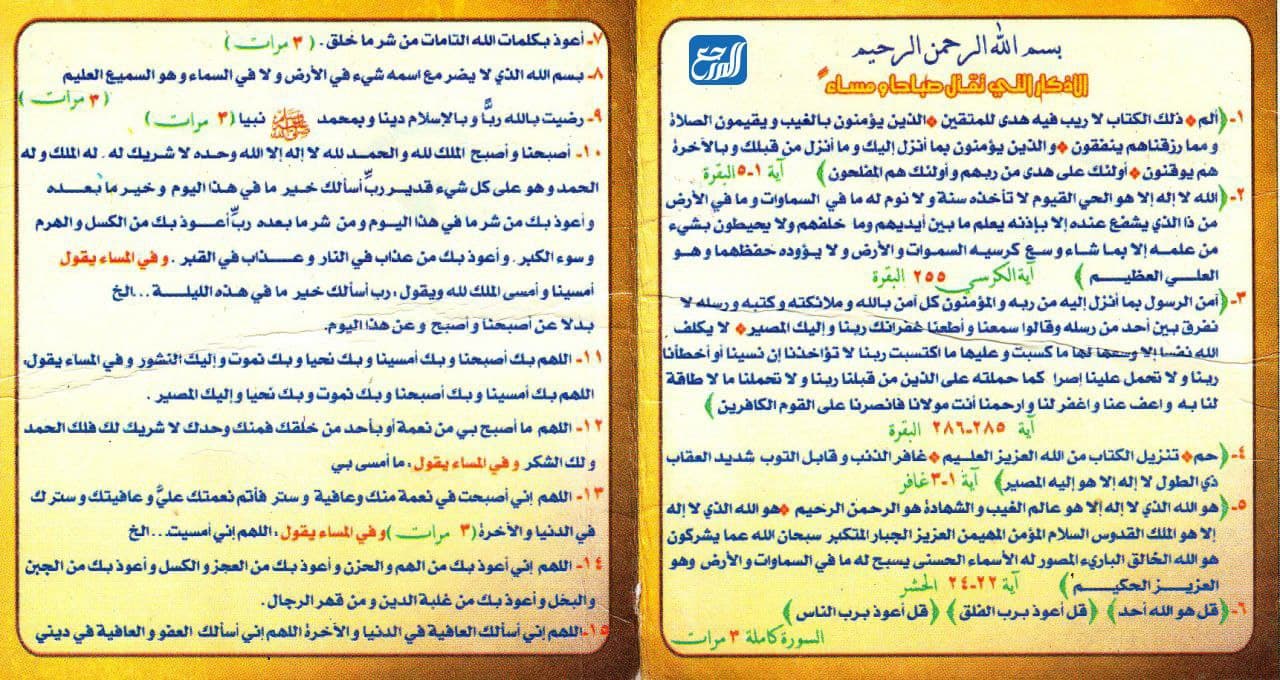 المرجع
بسم الله الرحمن الرحيم
الأذكار التي تقال صباحا ومساءً
١- ﴿ألم ❖ ذلك الكتاب لا ريب فيه هدى للمتقين ❖ الذين يؤمنون بالغيب ويقيمون الصلاة
ومما رزقناهم ينفقون ❖ والذين يؤمنون بما أنزل إليك وما أنزل من قبلك وبالآخرة
هم يوقنون ❖ أولئك على هدى من ربهم وأولئك هم المفلحون﴾ آية ١-٥ البقرة
٢- ﴿الله لا إله إلا هو الحي القيوم لا تأخذه سنة ولا نوم له ما في السماوات وما في الأرض
من ذا الذي يشفع عنده إلا بإذنه يعلم ما بين أيديهم وما خلفهم ولا يحيطون بشيء
من علمه إلا بما شاء وسع كرسيه السموات والأرض ولا يؤوده حفظهما وهو
العلي العظيم﴾ آية الكرسي ٢٥٥ البقرة
٣- ﴿آمن الرسول بما أنزل إليه من ربه والمؤمنون كل آمن بالله وملائكته وكتبه ورسله لا
نفرق بين أحد من رسله وقالوا سمعنا وأطعنا غفرانك ربنا وإليك المصير ❖ لا يكلف
الله نفسا إلا وسعها لها ما كسبت وعليها ما اكتسبت ربنا لا تؤاخذنا إن نسينا أو أخطأنا
ربنا ولا تحمل علينا إصرا كما حملته على الذين من قبلنا ربنا ولا تحملنا ما لا طاقة
لنا به واعف عنا واغفر لنا وارحمنا أنت مولانا فانصرنا على القوم الكافرين﴾
آية ٢٨٥-٢٨٦ البقرة
٤- ﴿حم ❖ تنزيل الكتاب من الله العزيز العليم ❖ غافر الذنب وقابل التوب شديد العقاب
ذي الطول لا إله إلا هو إليه المصير﴾ آية ١-٣ غافر
٥- ﴿هو الله الذي لا إله إلا هو عالم الغيب والشهادة هو الرحمن الرحيم ❖ هو الله الذي لا إله
إلا هو الملك القدوس السلام المؤمن المهيمن العزيز الجبار المتكبر سبحان الله عما يشركون
هو الله الخالق الباريء المصور له الأسماء الحسنى يسبح له ما في السماوات والأرض وهو
العزيز الحكيم﴾ آية ٢٢-٢٤ الحشر
٦- ﴿قل هو الله أحد﴾ ﴿قل أعوذ برب الفلق﴾ ﴿قل أعوذ برب الناس﴾
السورة كاملة ٣ مرات
٧- أعوذ بكلمات الله التامات من شر ما خلق . (٣ مرات)
٨- بسم الله الذي لا يضر مع اسمه شيء في الأرض ولا في السماء وهو السميع العليم
(٣ مرات)
٩- رضيت بالله ربًّا وبالإسلام دينا وبمحمد ﷺ نبيا (٣ مرات)
١٠- أصبحنا وأصبح الملك لله والحمد لله لا إله إلا الله وحده لا شريك له . له الملك وله
الحمد وهو على كل شيء قدير ربِّ أسألك خير ما في هذا اليوم وخير ما بعده
وأعوذ بك من شر ما في هذا اليوم ومن شر ما بعده ربِّ أعوذ بك من الكسل والهرم
وسوء الكبر . وأعوذ بك من عذاب في النار وعذاب في القبر . وفي المساء يقول
أمسينا وأمسى الملك لله ويقول : رب أسألك خير ما في هذه الليلة ... الخ
بدلا عن أصبحنا وأصبح وعن هذا اليوم.
١١- اللهم بك أصبحنا وبك أمسينا وبك نحيا وبك نموت وإليك النشور وفي المساء يقول:
اللهم بك أمسينا وبك أصبحنا وبك نموت وبك نحيا وإليك المصير .
١٢- اللهم ما أصبح بي من نعمة أو بأحد من خلقك فمنك وحدك لا شريك لك فلك الحمد
ولك الشكر وفي المساء يقول : ما أمسى بي
١٣- اللهم إني أصبحت في نعمة منك وعافية وستر فأتم نعمتك عليَّ وعافيتك وسترك
في الدنيا والآخرة (٣ مرات) وفي المساء يقول : اللهم إني أمسيت ... الخ
١٤- اللهم إني أعوذ بك من الهم والحزن وأعوذ بك من العجز والكسل وأعوذ بك من الجبن
والبخل وأعوذ بك من غلبة الدين ومن قهر الرجال.
١٥- اللهم إني أسألك العافية في الدنيا والآخرة اللهم إني أسألك العفو والعافية في ديني